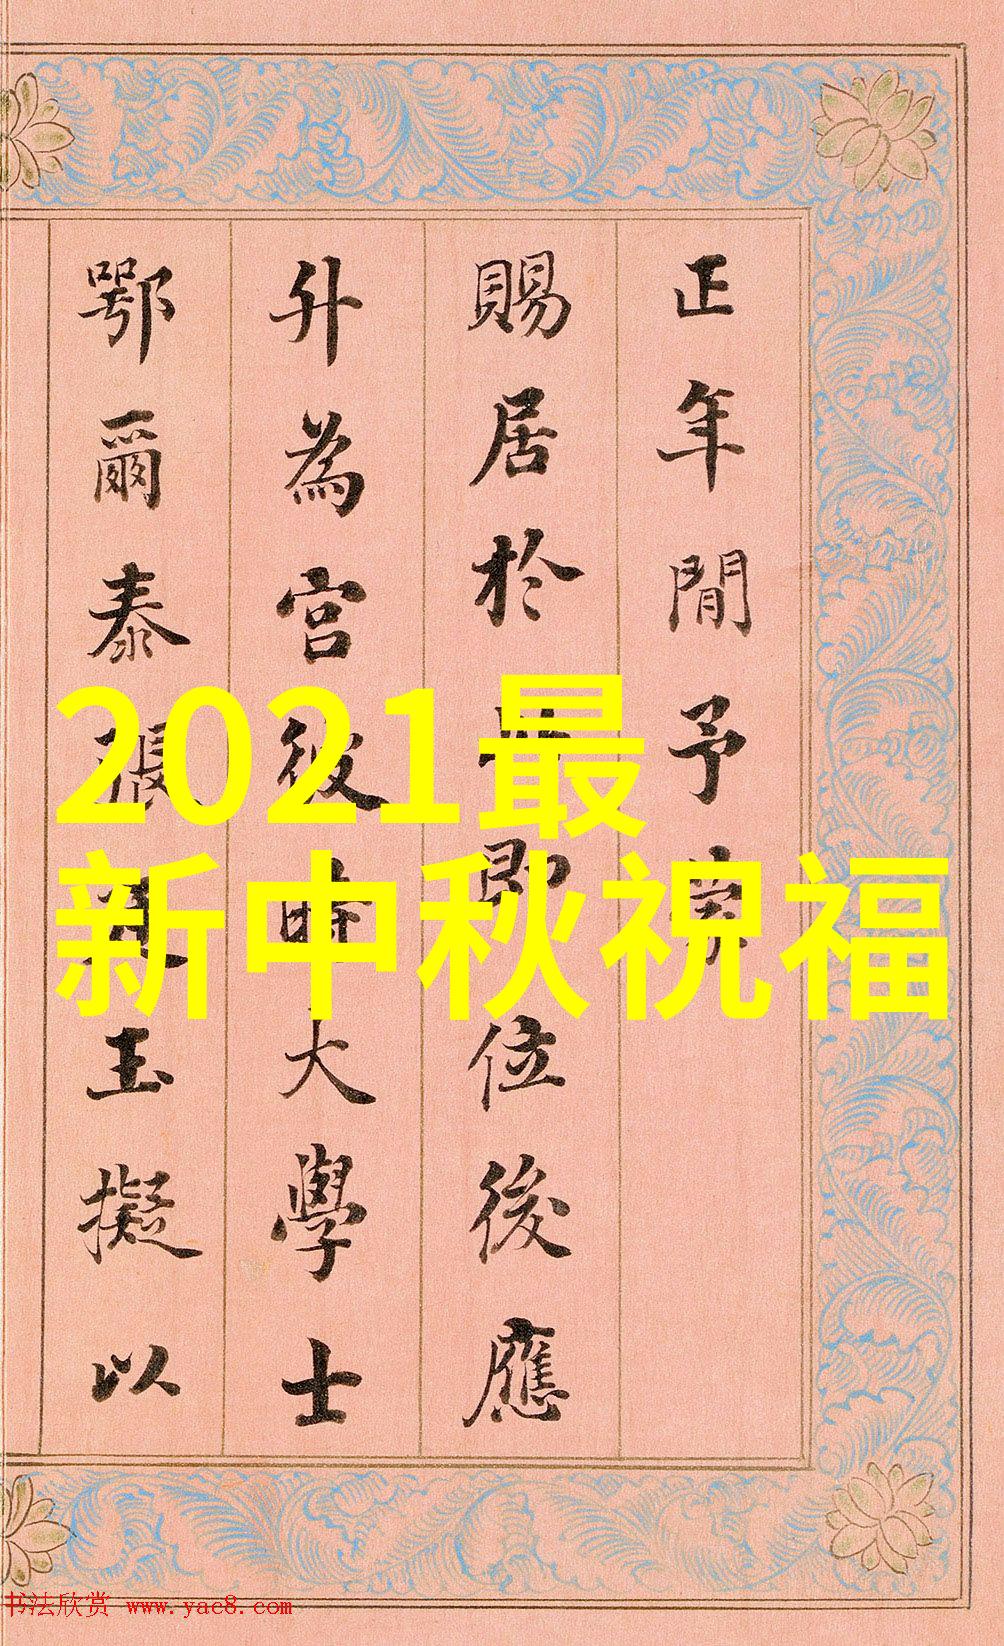 正年間予
賜居於即位後應
升為宮彼時大學士
鄂爾泰張廷玉擬以
2021最
新中秋祝福
书法欣赏 www.yac8.com